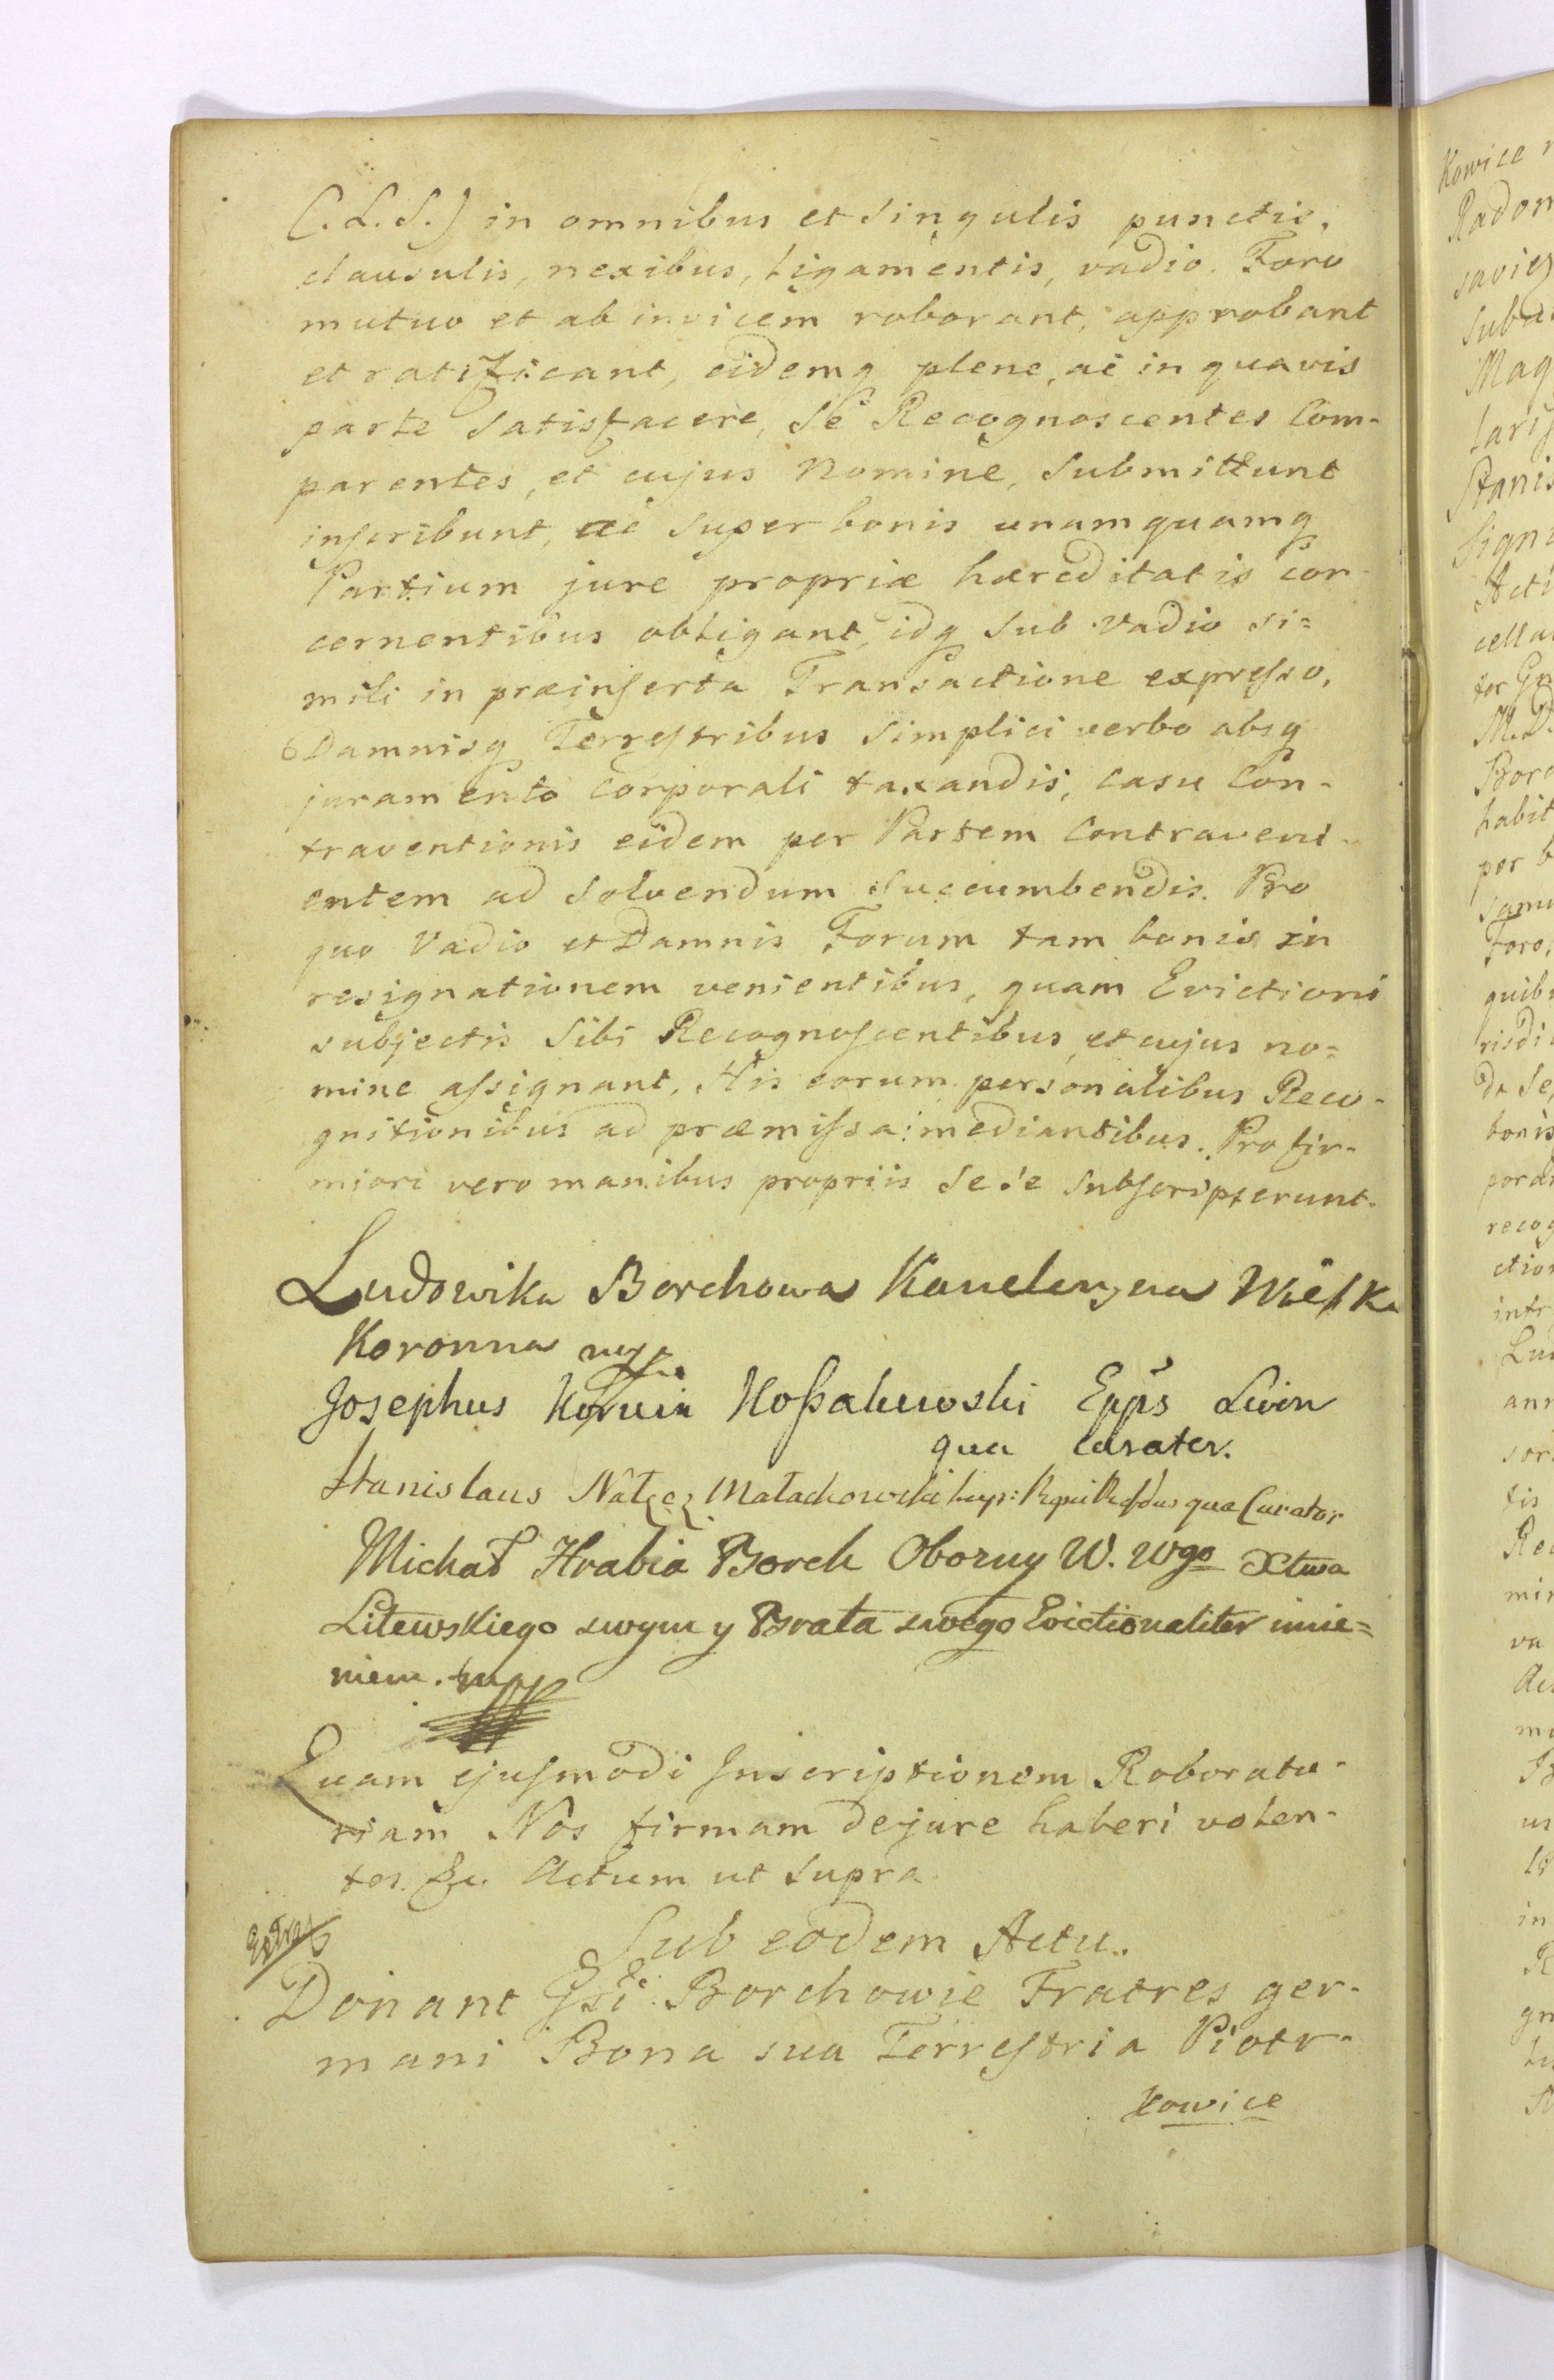 (.L.S.) in omnibus et singulis punctis,
clausulis, nexibus, ligamentis, vadio. Foro
mutuo et ab invicem roborant, approbant
et ratificant, eidemq plene, ac in quavis
parte satisfacere, Se Recognoscentes Com-
parentes, et cujus Nomine, submittunt
inscribunt, ac super bonis unamquamq
Partium jure propriæ hæreditatis con-
cernentibus obligant, idq sub vadio si=
mili in præinserta Transactione expresso,
Damnisq Terrestribus simplici verbo absq
juramento corporali taxandis, casu Con-
traventionis eidem per Partem Contraveni-
entem ad solvendum succumbendis. Pro
quo Vadio et Damnis Forum tam bonis in
resignationem venientibus, quam Evictioni
subjectis sibi Recognoscentibus, et cujus no=
mine assignant, His eorum personalibus Reco-
gnitionibus ad præmissa: mediantibus. Pro fir-
miori vero manibus propriis sese subscripserunt.
Ludowika Borchowa Kanclerzyna Wielka
Koronna
Josephus Korwin Koßakowski Epps Livon
qua Curator.
Stanislaus Nałęcz Małachowski qua Curator
Michał Hrabia Borch Oboźny W. Wgo Xtwa
Litewskiego swym y Brata swego Evictionaliter imie=
niem.
Quam ejusmodi Inscriptionem Roborato-
riam Nos firmam de jure haberi volen-
tes. &c. Actum ut supra
Extrad
Sub eodem Actu.
Donant Borchowie Fratres ger-
mani Bona sua Terrestria Piotr-
kowice